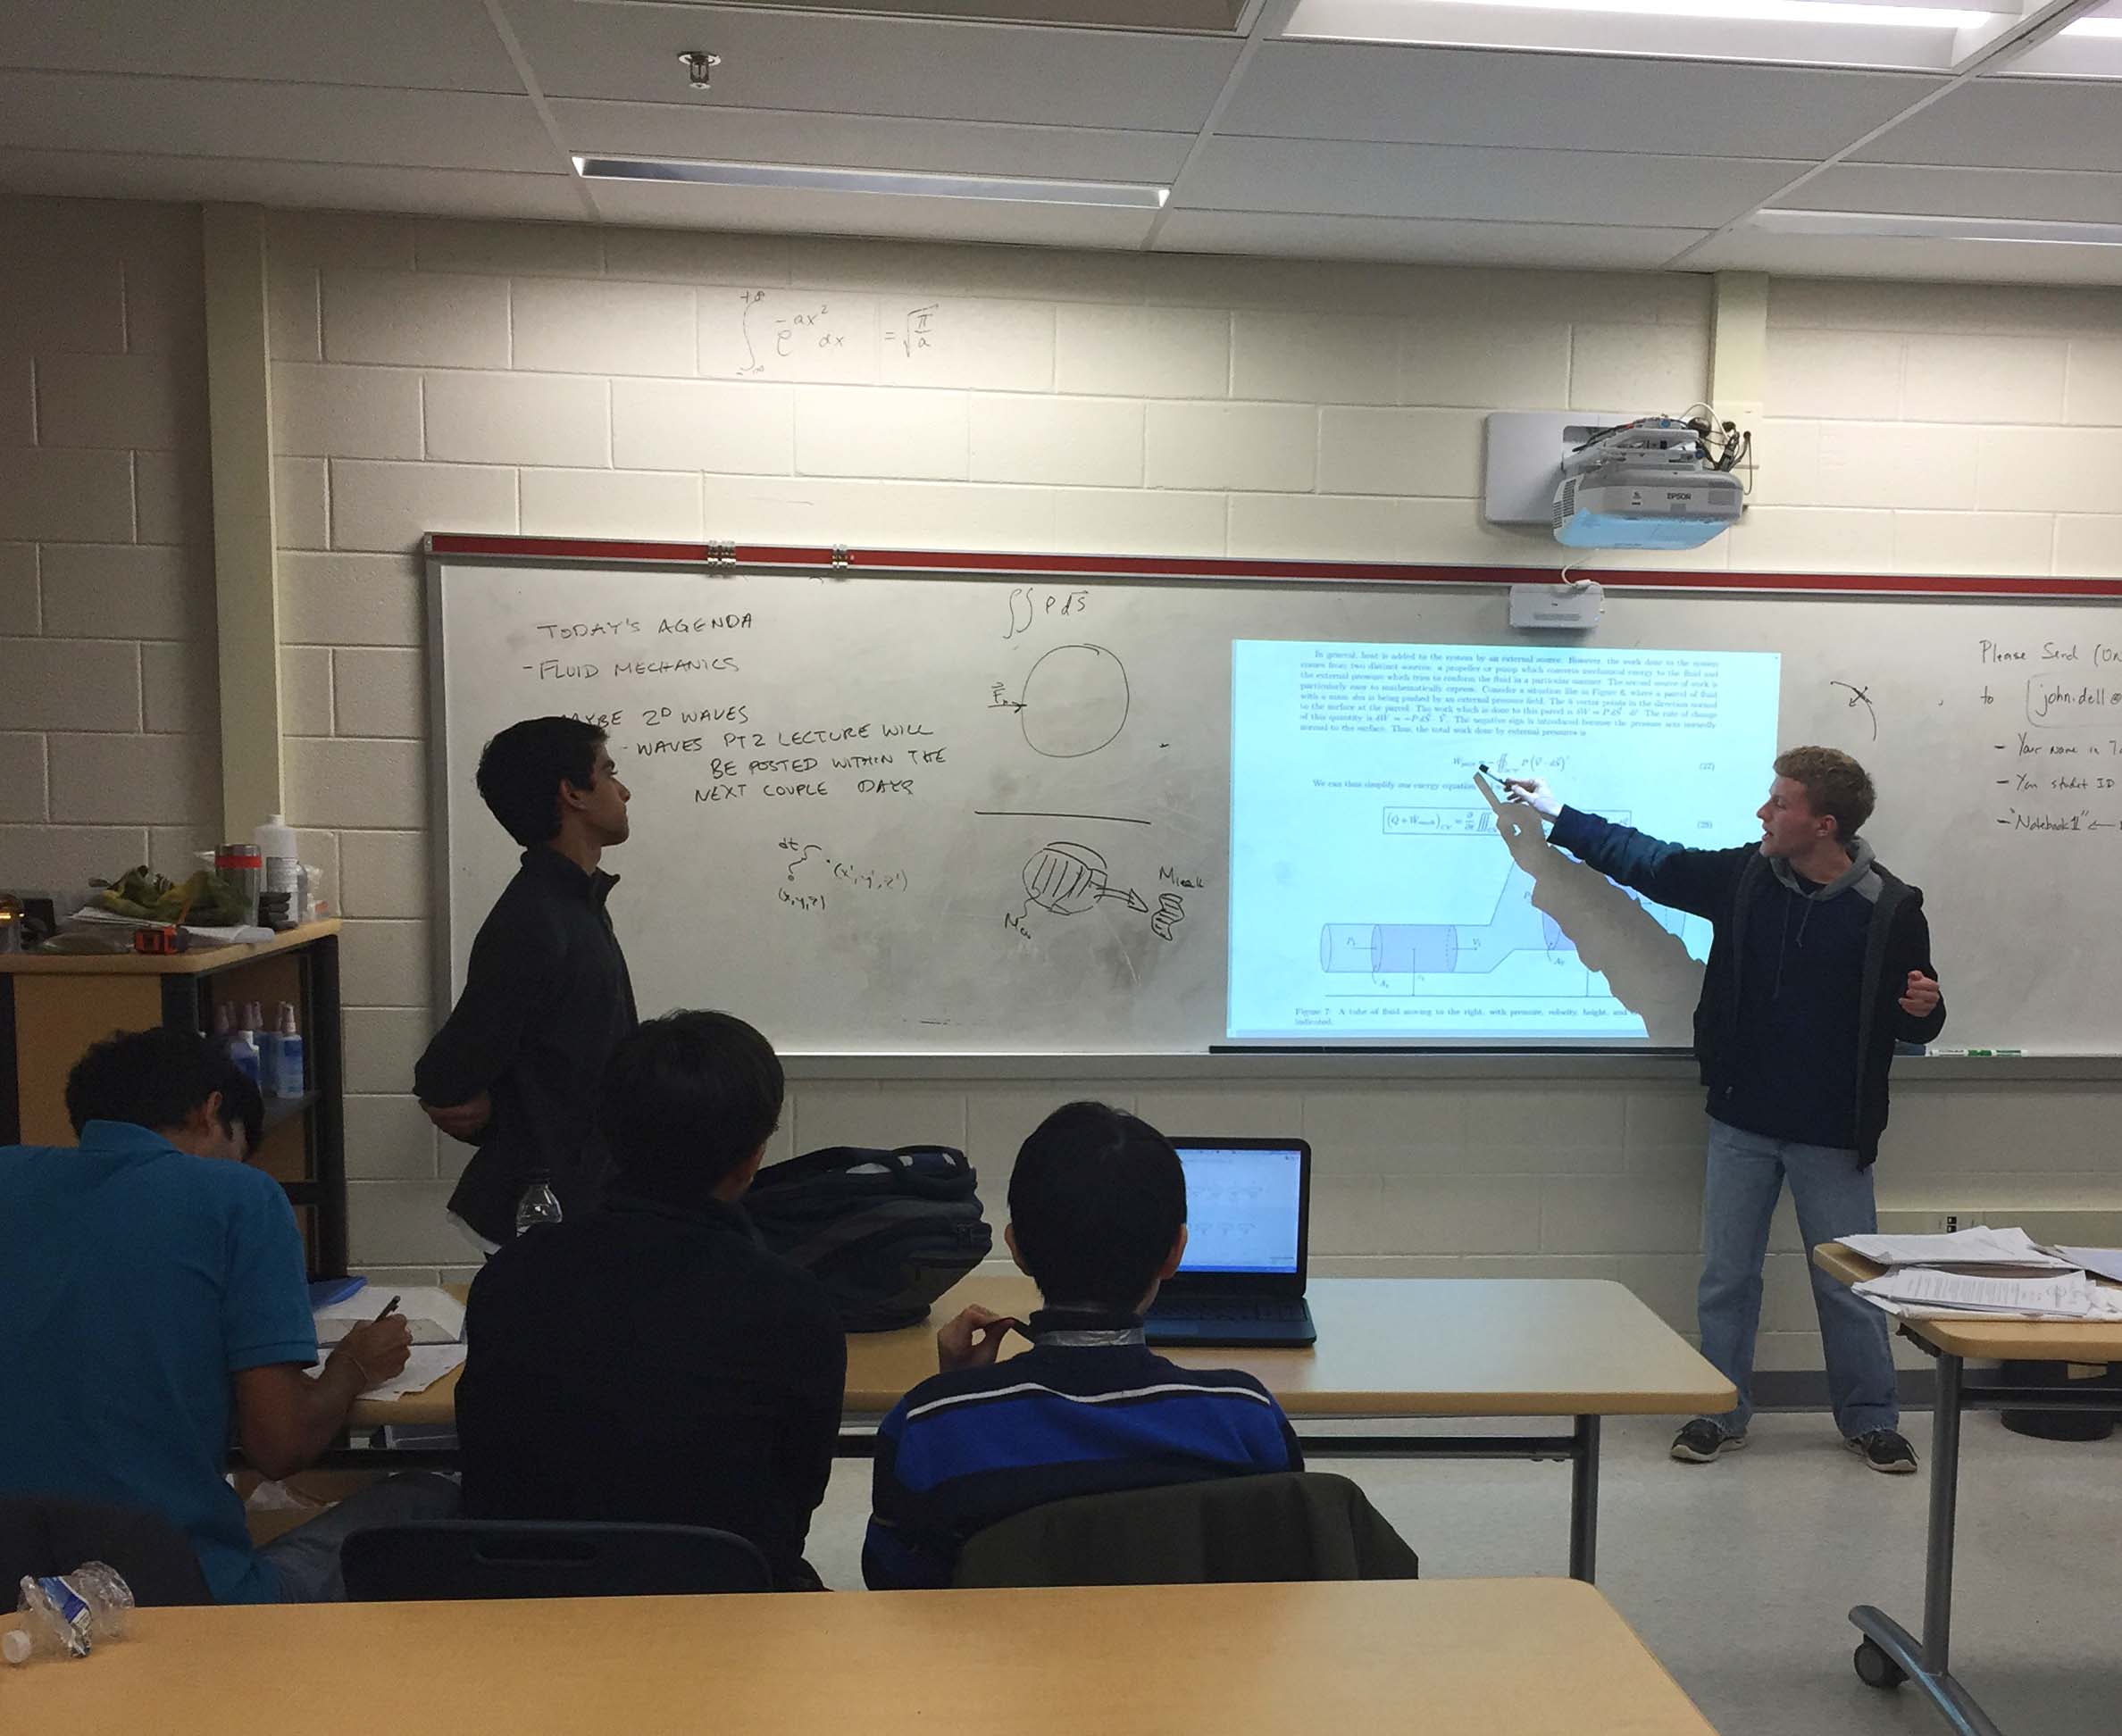 +∞
∫ e^-ax² dx = √π/a
-∞
EPSON
TODAY'S AGENDA
- FLUID MECHANICS
MAYBE 2D WAVES
- WAVES PT2 LECTURE WILL
BE POSTED WITHIN THE
NEXT COUPLE DAYS
∬ P ds
F
dt
(x',y',z')
(x,y,z)
M
In general, heat is added to the system by an external source. However, the work done to the system
comes from two distinct sources: a propeller or pump which converts mechanical energy to the fluid and
the external pressure which tries to conform the fluid in a particular manner. The second source of work is
particularly easy to mathematically express. Consider a situation like in Figure 6, where a parcel of fluid
with a mass dm is being pushed by an external pressure field. The
vector points in the direction normal
to the surface at the parcel. The work which is done to this parcel is
The rate of change
of this quantity is
The negative sign is introduced because the pressure acts inwardly
normal to the surface. Thus, the total work done by external pressures is
(27)
We can then simplify our energy equation
(28)
Figure 7: A tube of fluid moving to the right, with pressure, velocity, height, and
indicated.
Please Send (
to john.dell@
- Your name in
- You studet ID
- "Notebook 1" ←